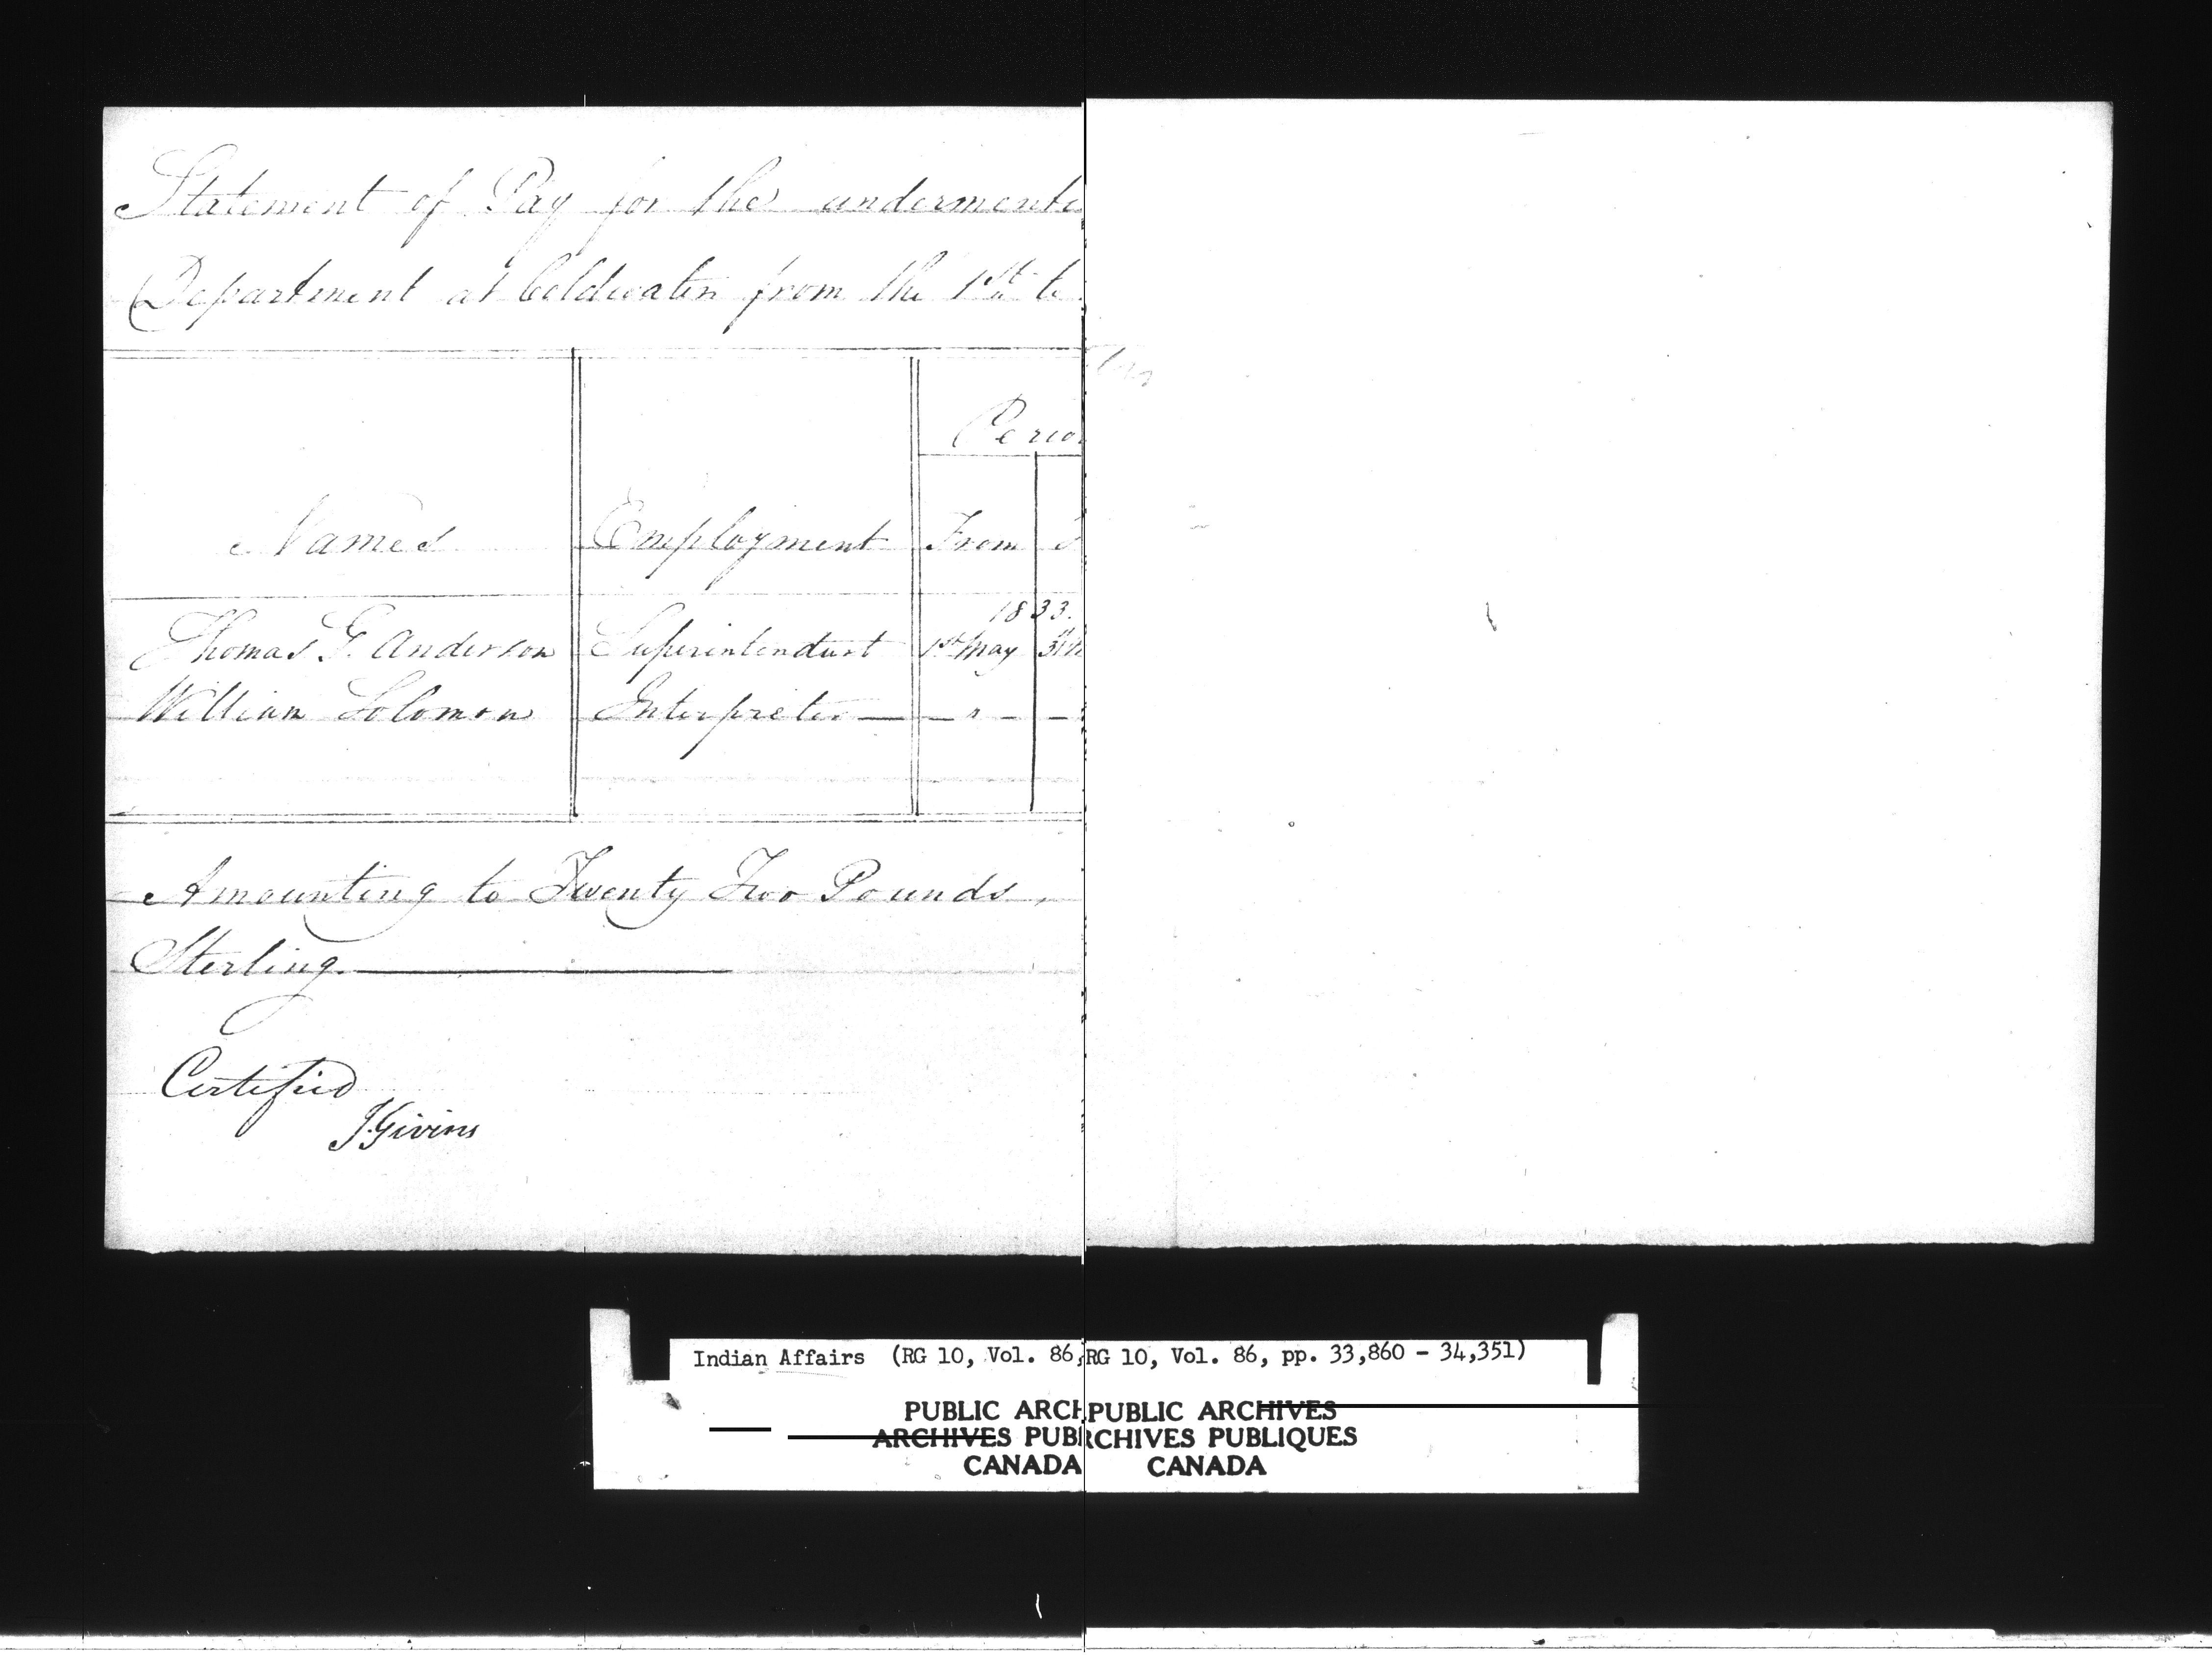 Statement of Pay for the undermente
Department at Coldwater from the 1st to
Perio
Names Employment From
1833.
Thomas G. Anderson Superintendent 1st May 31
William Solomon Interpreter — — " — —
Amounting to Twenty Two Pounds
Sterling.
Certified
J Givins
Indian Affairs (RG 10, Vol. 86, RG 10, Vol. 86, pp. 33,860 - 34,351)
PUBLIC ARCH PUBLIC ARCHIVES
ARCHIVES PUBL RCHIVES PUBLIQUES
CANADA CANADA